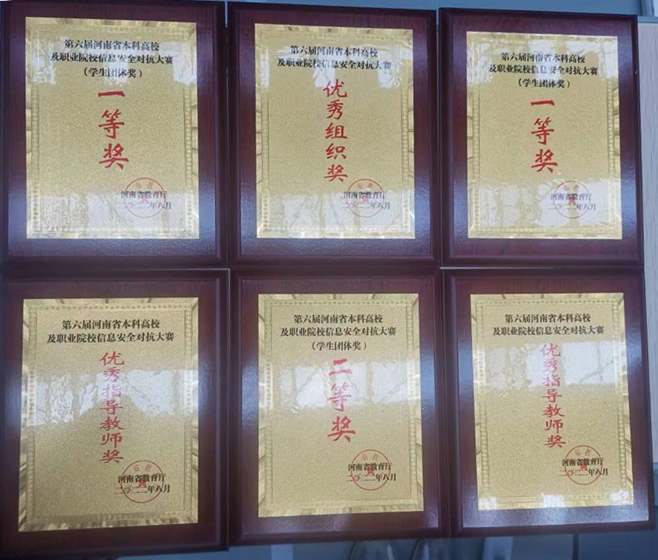 第六届河南省本科高校
及职业院校信息安全对抗大赛
（学生团体奖）
一等奖
河南省教育厅
二〇二二年八月
第六届河南省本科高校
及职业院校信息安全对抗大赛
优秀组织奖
河南省教育厅
二〇二二年八月
第六届河南省本科高校
及职业院校信息安全对抗大赛
（学生团体奖）
一等奖
河南省教育厅
二〇二二年八月
第六届河南省本科高校
及职业院校信息安全对抗大赛
优秀指导教师奖
河南省教育厅
二〇二二年八月
第六届河南省本科高校
及职业院校信息安全对抗大赛
（学生团体奖）
二等奖
河南省教育厅
二〇二二年八月
第六届河南省本科高校
及职业院校信息安全对抗大赛
优秀指导教师奖
河南省教育厅
二〇二二年八月